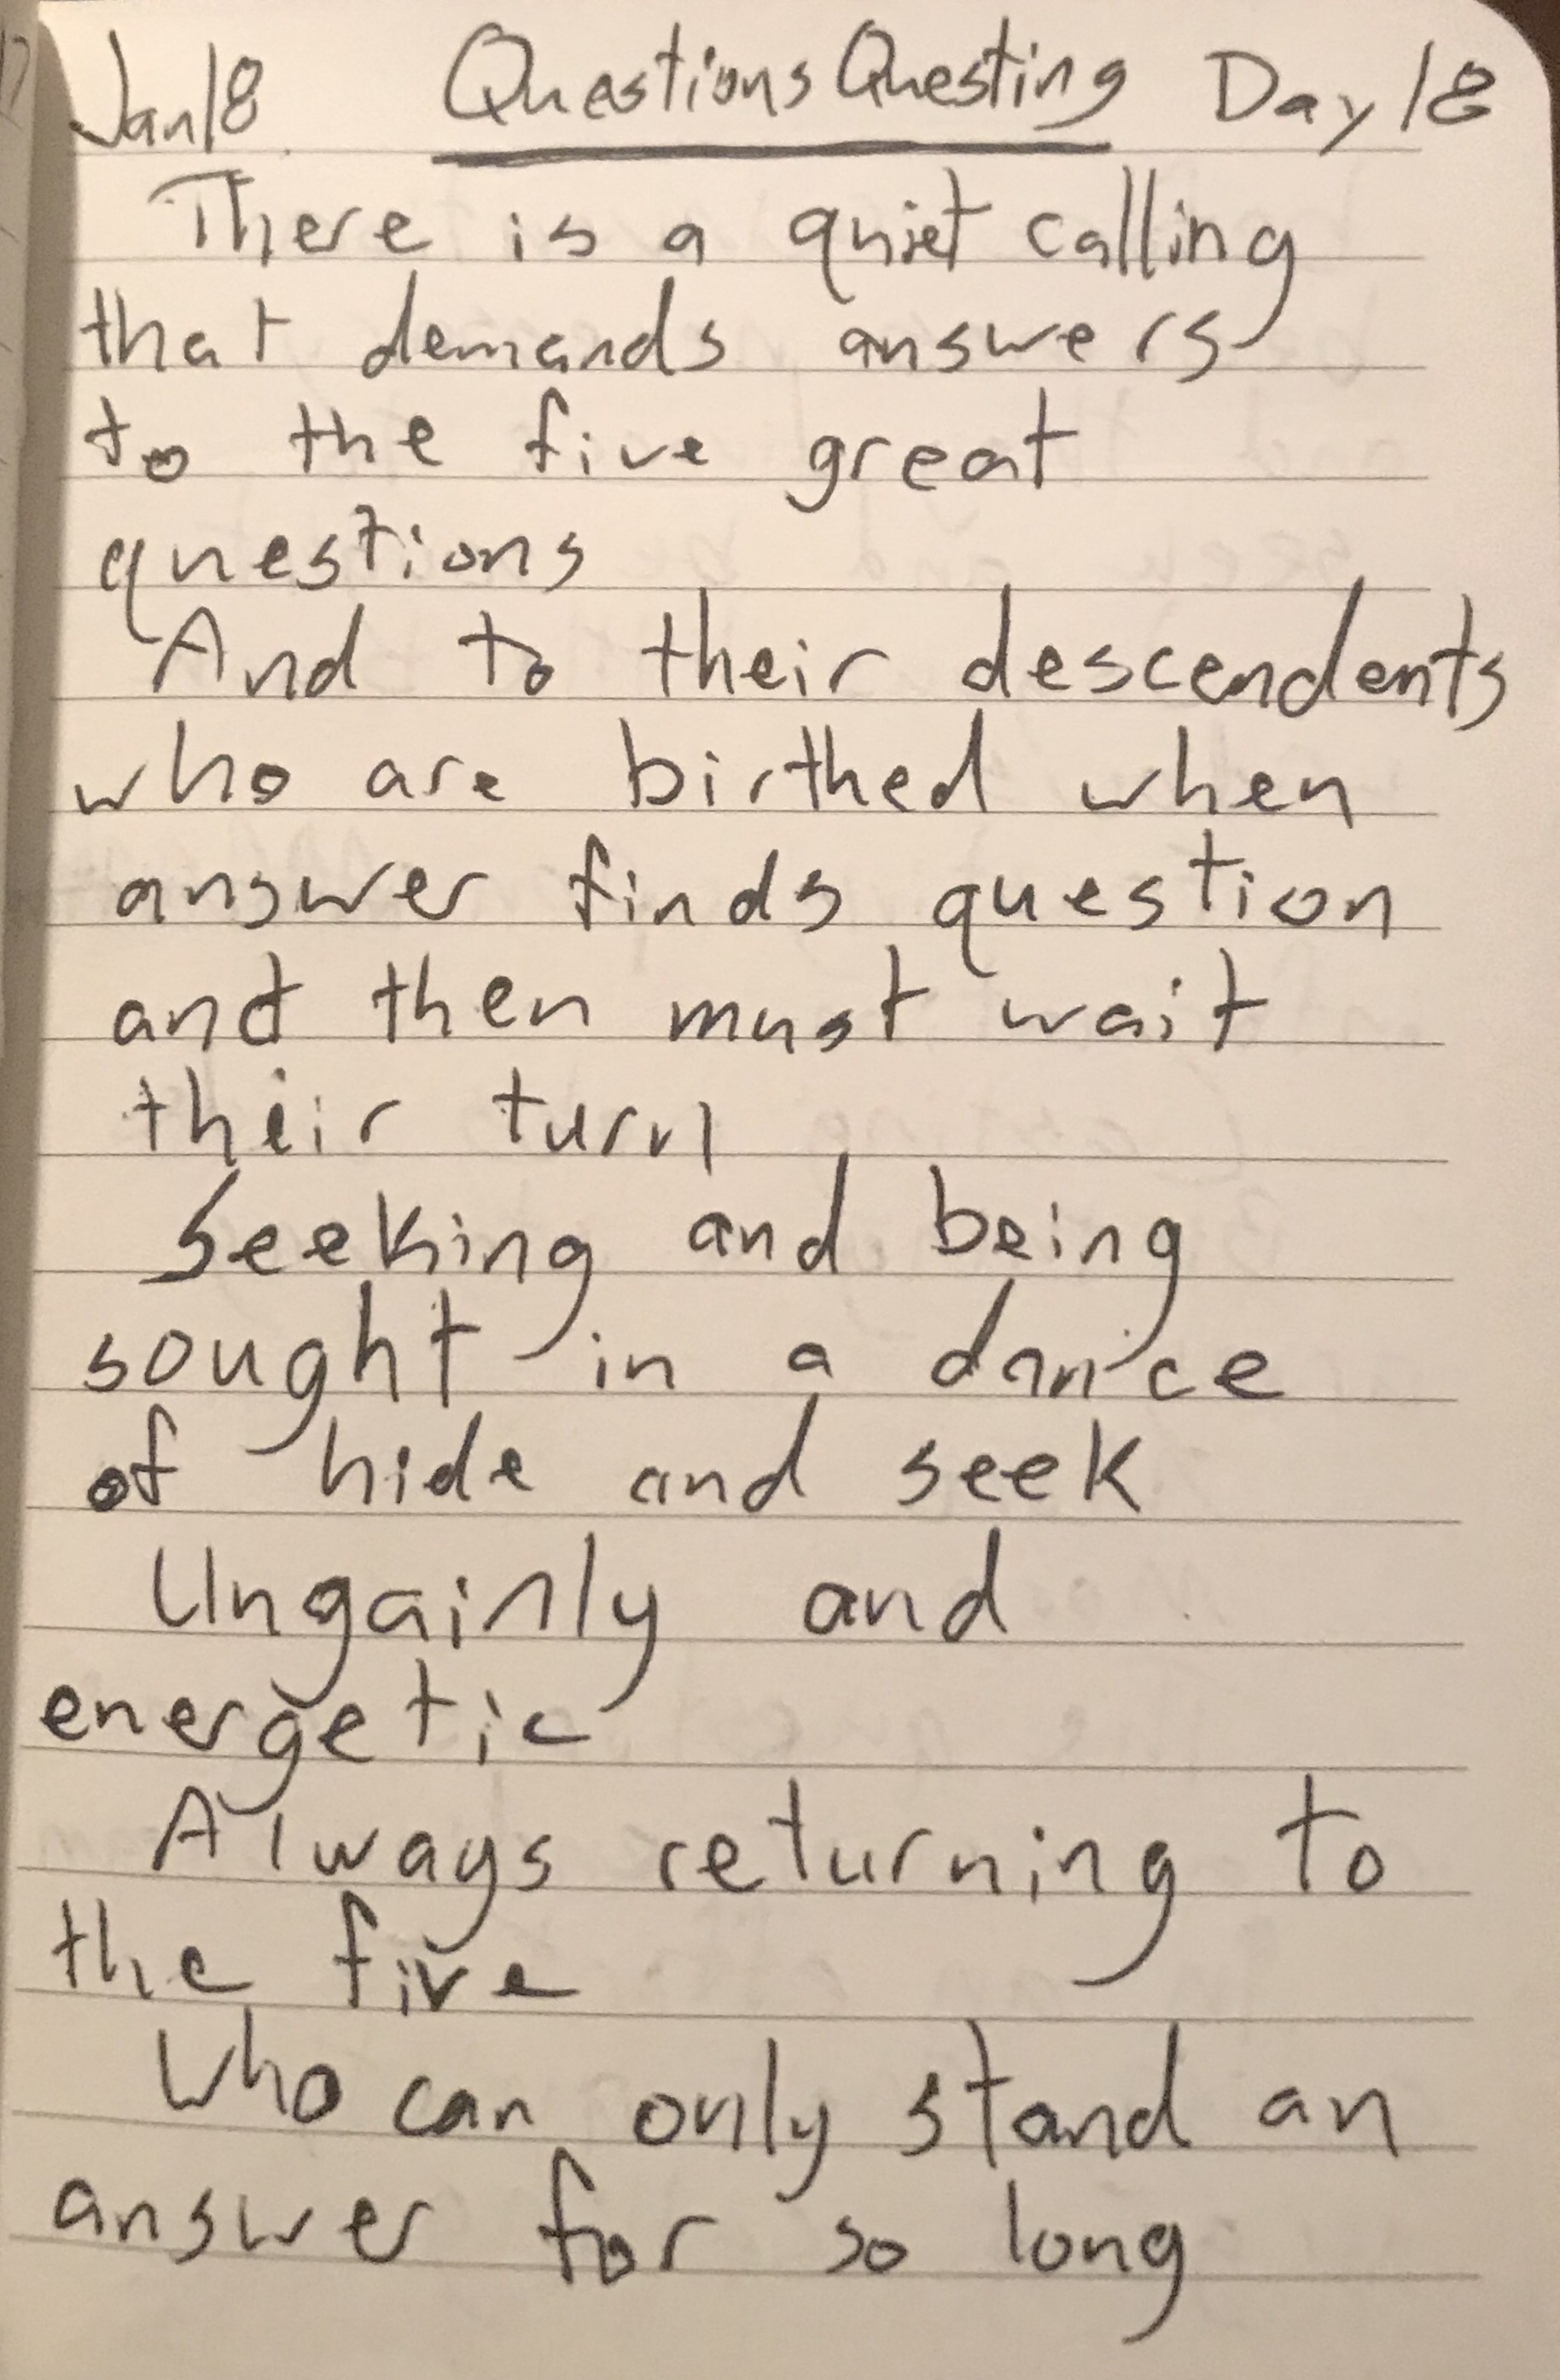 Jan 18 Questions Questing Day 18
There is a quiet calling
that demands answers
to the five great
questions
And to their descendents
who are birthed when
answer finds question
and then must wait
their turn
Seeking and being
sought in a dance
of hide and seek
Ungainly and
energetic
Always returning to
the five
Who can only stand an
answer for so long